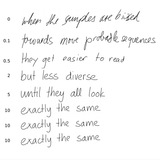 0 when the samples are biased
0.1 towards more probable sequences
0.5 they get easier to read
2 but less diverse
5 until they all look
10 exactly the same
10 exactly the same
10 exactly the same